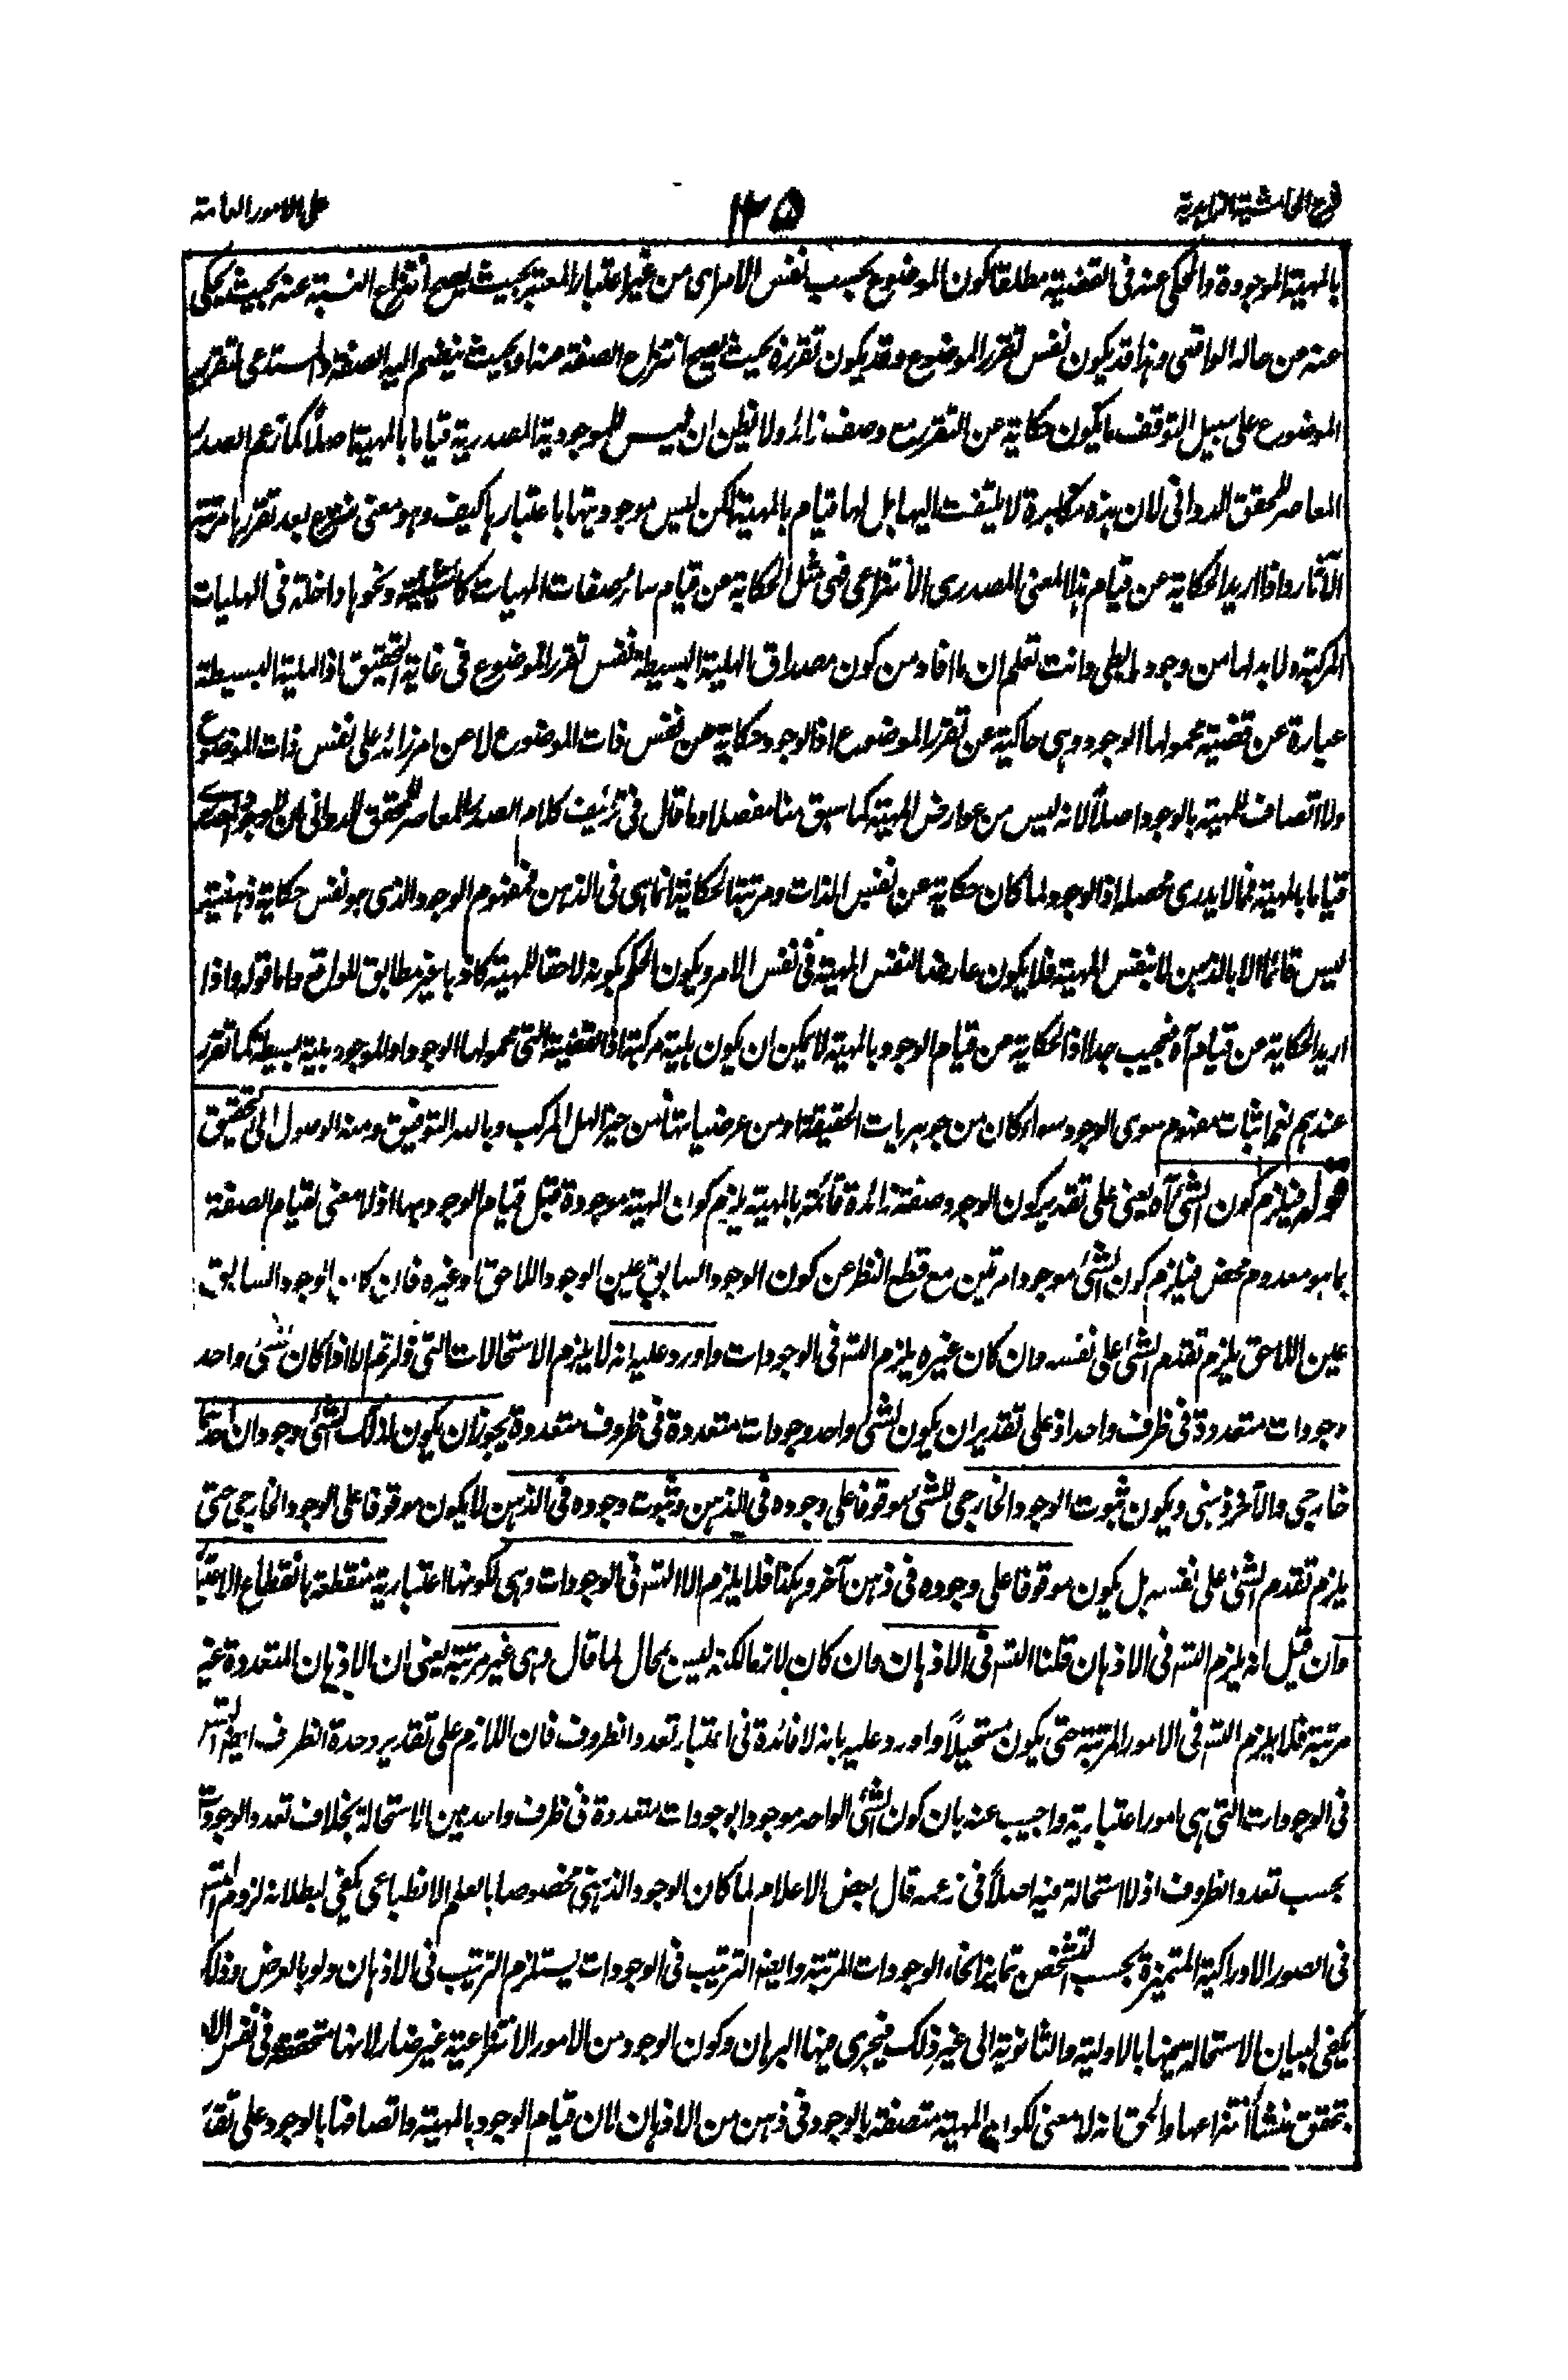 شرح الحاشية الزاهدية
١٣٥
على الامور العامة
بالمهية الموجودة والمحكى عنه فى القضية مطلقا كون الموضوع بحسب نفس الامر اى من غير اعتبار المعتبر بحيث يصح انتزاع النسبة عنه بحيث يحكى
عنه من حاله الواقعى وهذا قد يكون نفس تقرر الموضوع وقد يكون تقرره بحيث يصح انتزاع الصفة منه او بحيث ينضم اليه الصفة و استدعى لتقرر
الموضوع على سبيل التوقف ما يكون حكاية عن التقرر مع وصف زائد ولا تظن ان ليس للموجودية المصدرية قياما بالمهية اصلا كما زعم الصدر
المعاصر للمحقق الدوانى لان هذه مكابرة لا يلتفت اليها بل لها قيام بالمهية لكن ليس موجوديتها باعتبارها كيف وهو معنى منتزع بعد تقررها مرتبة
الآثار واذا اريد الحكاية عن قيام هذا المعنى المصدرى الانتزاعى فهى مثل الحكاية عن قيام سائر صفات المهيات كالشيئية ونحوها داخلة فى الهليات
المركبة ولا بد لها من وجود رابطى وانت تعلم ان ما افاد من كون مصداق الهلية البسيطة نفس تقرر الموضوع فى غاية التحقيق اذ الهلية البسيطة
عبارة عن قضية محمولها الوجود وهى حاكية عن تقرر الموضوع اذ الوجود حكاية عن نفس ذات الموضوع لا عن امر زائد على نفس ذات الموضوع
ولا اتصاف للمهية بالوجود اصلا لانه ليس من عوارض المهية كما سبق منا مفصلا وما قال فى تزئيف كلام الصدر المعاصر للمحقق الدوانى ان للوجود
قياما بالمهية فمما لا يدرى محصله اذ الوجود لما كان حكاية عن نفس الذات ومرتبة الحكاية انما هى فى الذهن فمفهوم الوجود الذى هو نفس حكاية ذهنية
ليس قائما الا بالذهن لا بنفس المهية فلا يكون عارضا لنفس المهية فى نفس الامر ويكون الحكم بكونه لاحقا للمهية كاذبا غير مطابق للواقع واما قوله واذا
اريد الحكاية عن قيامه آه فعجيب جدا اذ الحكاية عن قيام الوجود بالمهية لا يمكن ان يكون هلية مركبة اذ القضية التى محمولها الوجود او الموجود هلية بسيطة كما تقرر
عندهم نعم اثبات مفهوم سوى الوجود سواء كان من جوهريات الحقيقة او من عرضياتها من حيز الهل المركب وبالله التوفيق ومنه الوصول الى التحقيق
قوله فيلزم كون الشئ آه يعنى على تقدير كون الوجود صفة زائدة قائمة بالمهية يلزم كون المهية موجودة قبل قيام الوجود بها اذ لا معنى لقيام الصفة
بما هو معدوم محض فيلزم كون الشئ موجودا مرتين مع قطع النظر عن كون الوجود السابق عين الوجود اللاحق او غيره فان كان الوجود السابق
عين اللاحق يلزم تقدم الشئ على نفسه وان كان غيره يلزم التسـ فى الوجودات واورد عليه انه لا يلزم الاستحالات التى الا اذا كان لشئ واحد
وجودات متعددة فى ظرف واحد اذ على تقدير ان يكون لشئ واحد وجودات متعددة فى ظروف متعددة يجوز ان يكون لذلك الشئ وجودان احدهما
خارجى والآخر ذهنى ويكون ثبوت الوجود الخارجى للشئ موقوفا على وجوده فى الذهن وثبوت وجوده فى الذهن لا يكون موقوفا على الوجود الخارجى حتى
يلزم تقدم الشئ على نفسه بل يكون موقوفا على وجوده فى ذهن آخر وهكذا فلا يلزم الا التسـ فى الوجودات وهى لكونها اعتبارية منقطعة بانقطاع الاعتبار
وان قيل انه يلزم التسـ فى الاذهان قلنا التسـ فى الاذهان وان كان لازما لكنه ليس بمحال لما قال وهى غير مرتبة يعنى ان الاذهان المتعددة غير
مرتبة فلا يلزم التسـ فى الامور المرتبة حتى يكون مستحيلا واورد عليه بانه لا فائدة فى اعتبار تعدد الظروف فان اللازم على تقدير وحدة الظرف ايضا التسـ
فى الوجودات التى هى امور اعتبارية واجيب عنه بان كون الشئ الواحد موجودا بوجودات متعددة فى ظرف واحد بين الاستحالة بخلاف تعدد الوجودات
بحسب تعدد الظروف اذ لا استحالة فيه اصلا فى زعمه قال بعض الاعلام لما كان الوجود الذهنى مخصوصا بالعلم الانطباعى يكفى لبطلانه لزوم التسـ
فى الصور الادراكية المتميزة بحسب التشخص تمايز انحاء الوجودات المرتبة وايضا الترتيب فى الوجودات يستلزم الترتيب فى الاذهان ولو بالعرض وذلك
يكفى لبيان الاستحالة بالاولية والثانوية الى غير ذلك فيجرى فيها البرهان وكون الوجود من الامور الانتزاعية غير ضار لانها متحققة فى نفس الامر
بتحقق منشأ انتزاعها والحق انه لا معنى لكون المهية متصفة بالوجود فى ذهن من الاذهان لان قيام الوجود بالمهية واتصافها بالوجود على تقدير